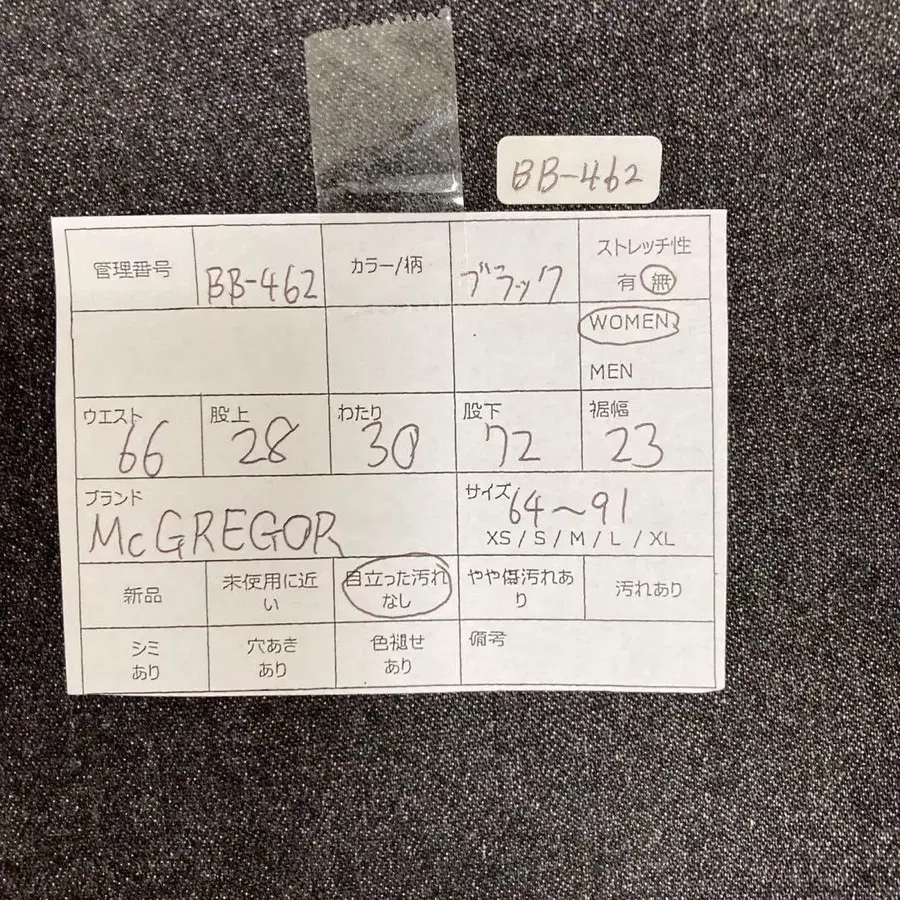 BB-462
管理番号
BB-462
カラー/柄
ブラック
ストレッチ性
有 無
WOMEN
MEN
ウエスト
66
股上
28
わたり
30
股下
72
裾幅
23
ブランド
McGREGOR
サイズ
64～91
XS / S / M / L / XL
新品
未使用に近
い
目立った汚れ
なし
やや傷汚れあ
り
汚れあり
シミ
あり
穴あき
あり
色褪せ
あり
備考